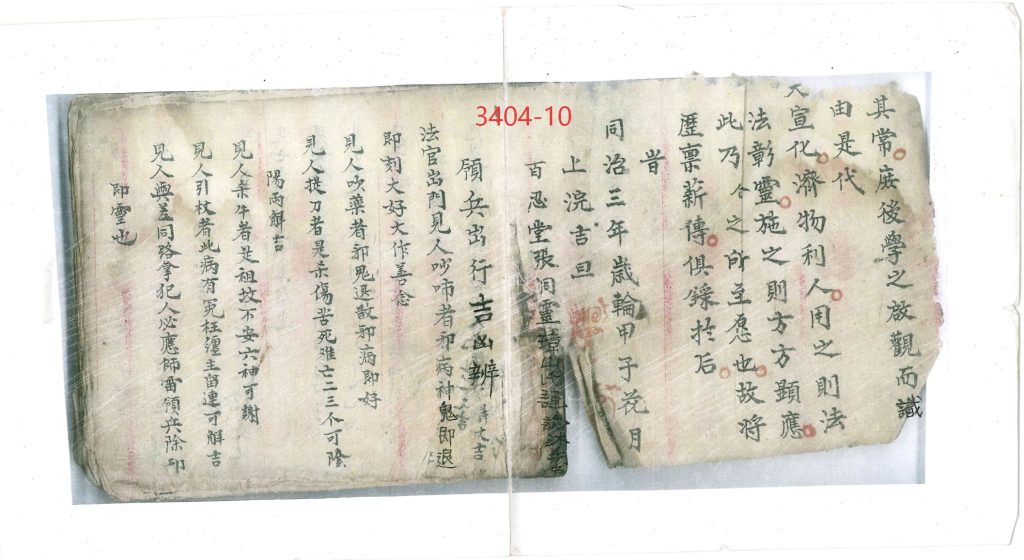 3404-10
其常庻後學之啟觀而識
由是代
天宣化濟物利人用之則法
法彰靈施之則方方顯應
此乃今之所至愿也故将
歷禀薪傳俱錄扵后
旹
同治三年歲輪甲子花月
上浣吉旦
百忍堂張洞靈
領兵出行吉凶辨
法官出門見人吵啼者邪病神鬼即退
即刻大好大作善念
見人吹藥者邪鬼退散邪病即好
見人提刀者是杀傷苦死难亡二三不可隂
陽兩解吉
見人牽牛者是祖坟不安六神可謝
見人引杖者此病有冤枉纏主留連可解吉
見人與差同路拿犯人必應師雷領兵除邪
即靈也